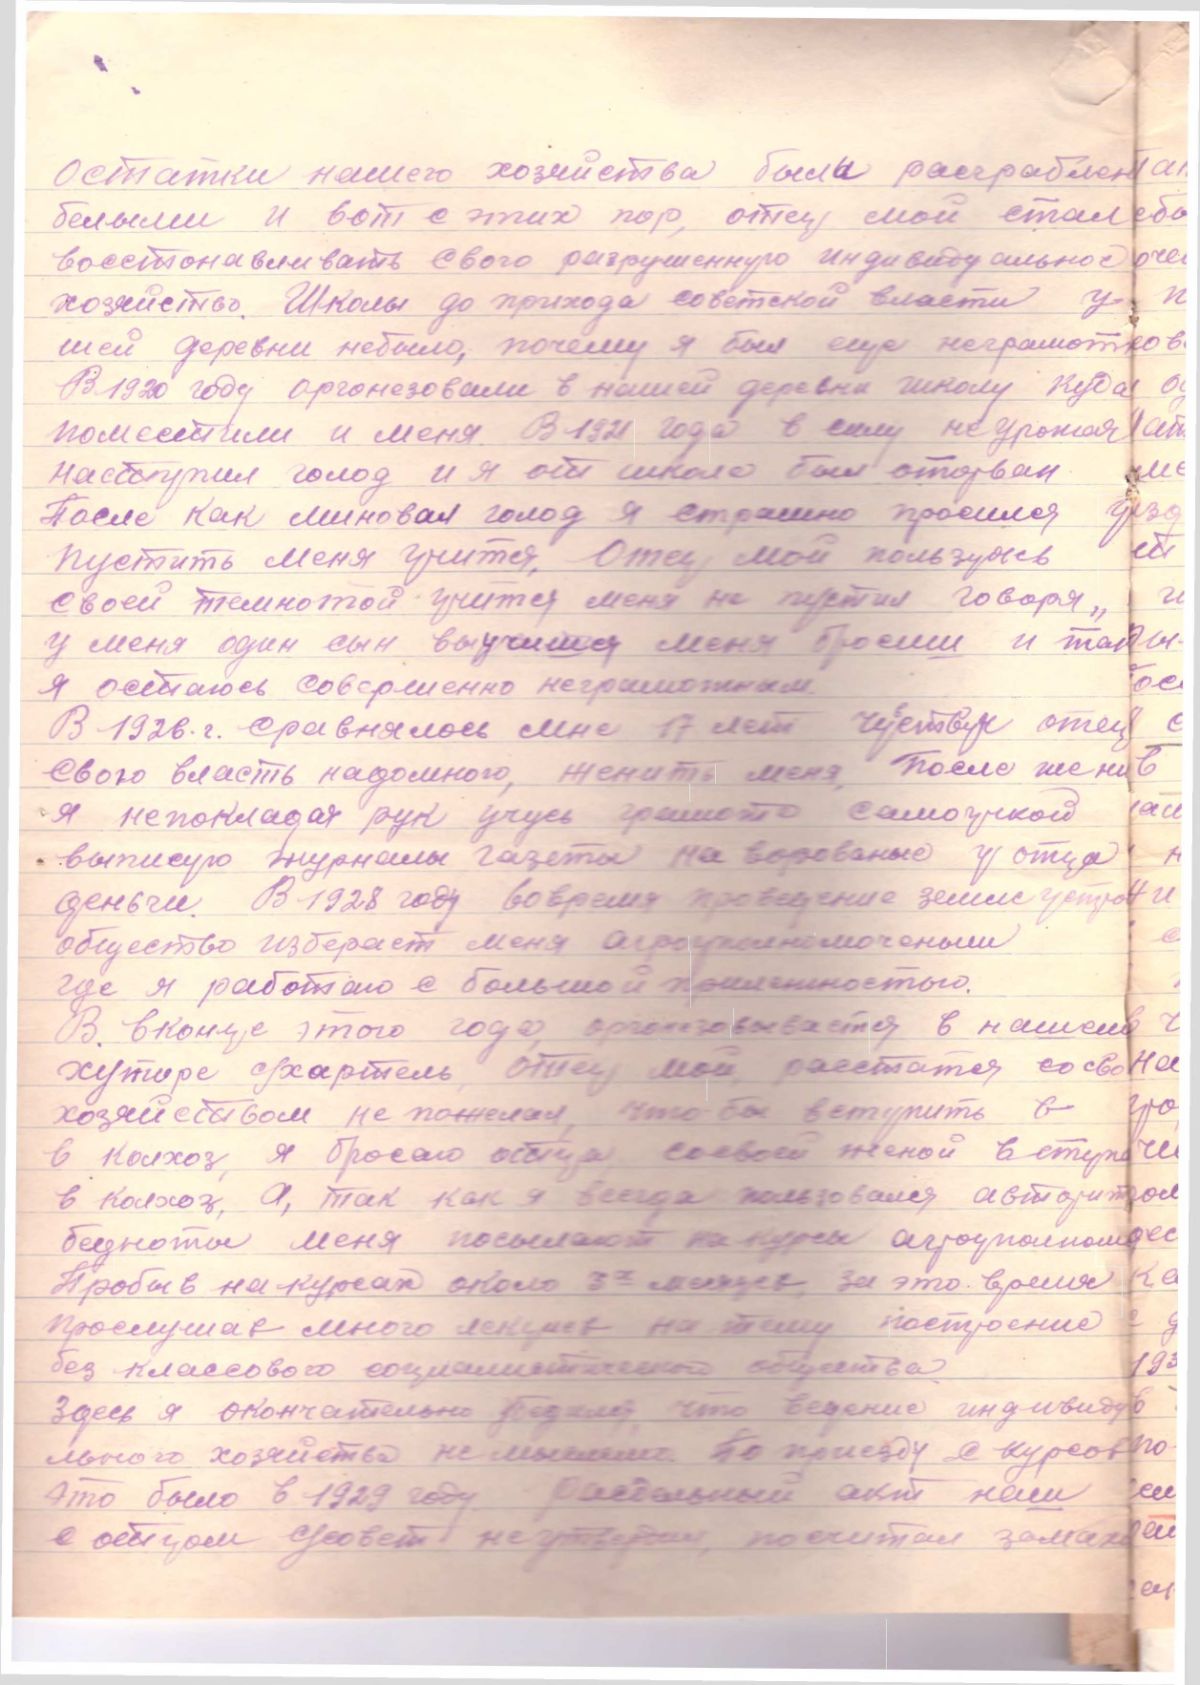 Остатки нашего хозяйства были расграблен
белыми и вот с этих пор, отец мой стал
восстонавливать свого разрушенную индивидуальное
хозяйство. Школы до прихода советской власти у
шей деревни небыло, почему я был еще неграмот
В 1920 году оргонезовали в нашей деревни школу куда
поместили и меня. В 1921 года в силу неурожая
наступил голод и я от школе был оторван
После как миновал голод я страшно просился
пустить меня учится, Отец мой пользуясь
своей темнотой учится меня не пустил говоря „
у меня один сын выучишся меня бросиш и так
я остаюсь совершенно неграмотным.
В 1926.г. сравнялось мне 17 лет чувствуя отец
свою власть надомною, женить меня, После жени
я непокладая рук учусь грамото самоучкой
выписую журналы газеты на ворованые у отца
деньги. В 1928 году вовремя проведение землеустрой
общество избераст меня агроуполномоченым
где я работаю с большой прилежностью.
В. вконце этого года, оргонезовывается в нашем
хуторе с/хартель, Отец мой, расстатся сосво
хозяйством не пожелал, что-бы вступить в
в колхоз, я бросаю отца, сосвоей женой вступ
в колхоз, А, так как я всегда пользовался авторит
бедноты меня посылают на курсы агроуполном
Пробыв на курсах около 3х месяцев, за это время
прослушав много лекциев на тему построение
без классового социалистического общества.
Здесь я окончательно что ведение индивиду
льного хозяйства не мыслимо. По приезду с курсов
это было в 1929 году Раздельный акт наш
с отцом с/совет не утвердил, посчитал